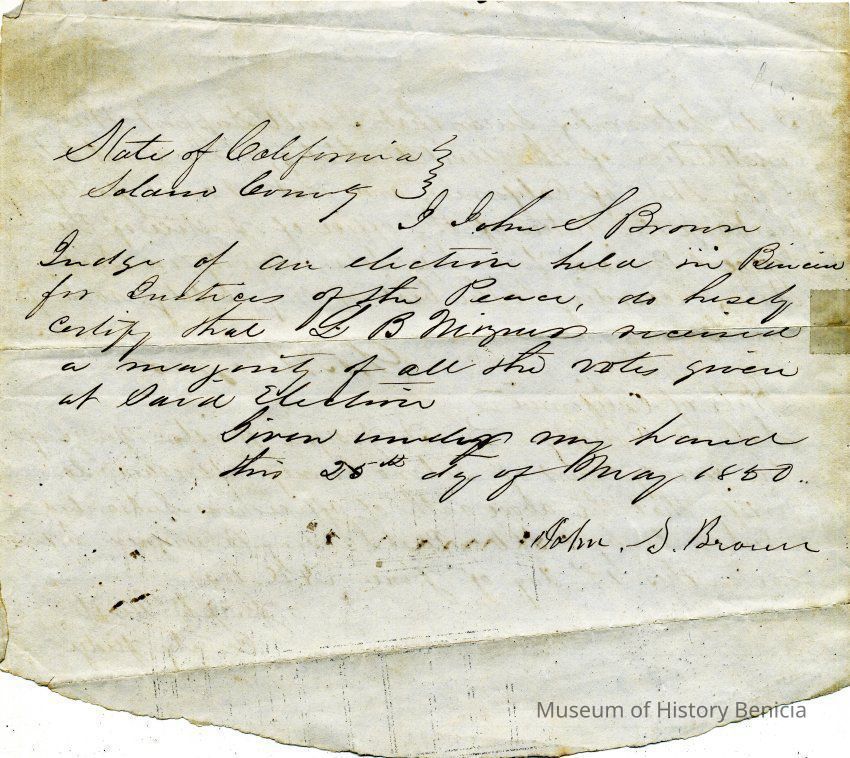 State of California
Solano County
I John S Brown
Judge of an election held in Benicia
for Justices of the Peace, do hereby
certify that L B Mizner received
a majority of all the votes given
at Said Election
Given under my hand
this 25th dy of May 1850.
John. S. Brown
Museum of History Benicia